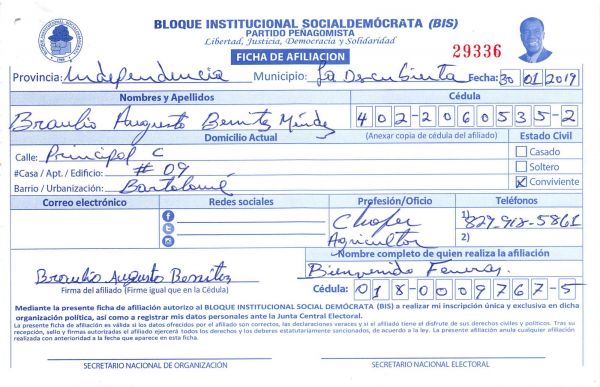 BLOQUE INSTITUCIONAL SOCIALDEMÓCRATA (BIS)
PARTIDO PEÑAGOMISTA
Libertad, Justicia, Democracia y Solidaridad
FICHA DE AFILIACION
29336
Provincia: Independencia Municipio: La Descubierta Fecha: 30 01 2019
Nombres y Apellidos Cédula
Braulio Augusto Benitez Méndez 402-2060535-2
Domicilio Actual (Anexar copia de cédula del afiliado) Estado Civil
Calle: Principal C Casado
#Casa / Apt. / Edificio: # 09 Soltero
Barrio / Urbanización: Bartolomé X Conviviente
Correo electrónico Redes sociales Profesión/Oficio Teléfonos
Chofer 1) 829-918-5861
Agricultor 2)
Nombre completo de quien realiza la afiliación
Braulio Augusto Benitez Bienvenido
Firma del afiliado (Firme igual que en la Cédula) Cédula: 018-0009767-5
Mediante la presente ficha de afiliación autorizo al BLOQUE INSTITUCIONAL SOCIAL DEMÓCRATA (BIS) a realizar mi inscripción única y exclusiva en dicha
organización política, así como a registrar mis datos personales ante la Junta Central Electoral.
La presente ficha de afiliación es válida si los datos ofrecidos por el afiliado son correctos, las declaraciones veraces y si el afiliado tiene el disfrute de sus derechos civiles y políticos. Tras su
recepción, sello y firmas autorizadas el afiliado ejercerá todos los derechos y los deberes estatutariamente sancionados, de acuerdo a la ley. La presente afiliación anula cualquier afiliación
realizada con anterioridad a la fecha que aparece en esta ficha.
SECRETARIO NACIONAL DE ORGANIZACIÓN SECRETARIO NACIONAL ELECTORAL